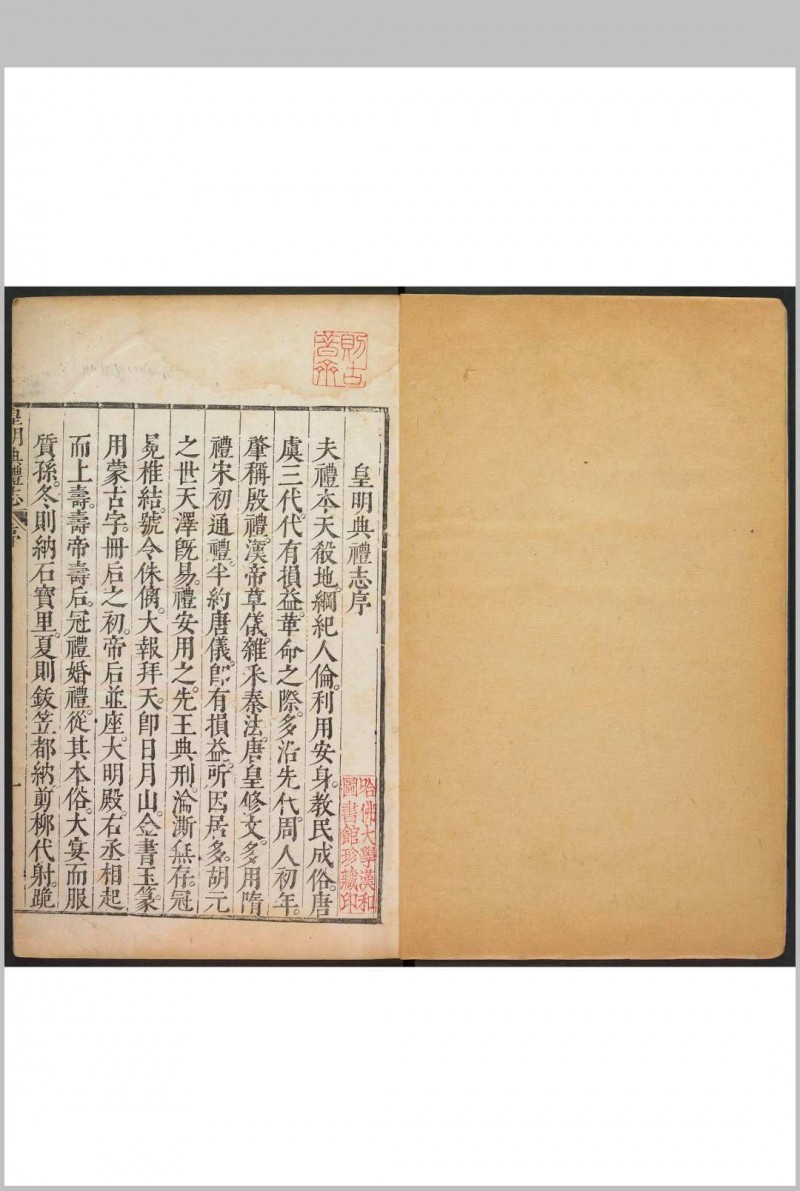 皇明典禮志序
夫禮本天殽地。綱紀人倫。利用安身。教民成俗。唐
虞三代。代有損益。革命之際。多沿先代。周人初年。
肇稱殷禮。漢帝草儀。雜釆秦法。唐皇修文。多用隋
禮。宋初通禮。半約唐儀。卽有損益。所因居多。胡元
之世。天澤旣易。禮安用之。先王典刑。淪澌無存。冠
冕椎結。號令侏𠌯。大報拜天。卽日月山。金書玉篆。
用蒙古字。冊后之初。帝后並座。大明殿。右丞相起
而上壽。壽帝壽后。冠禮婚禮。從其本俗。大宴而服
質孫。冬則納石寶里。夏則鈸笠都納。剪柳代射。跪
皇明典禮志 序 一
哈佛大學漢和
圖書館珍藏印
則古
昔齋